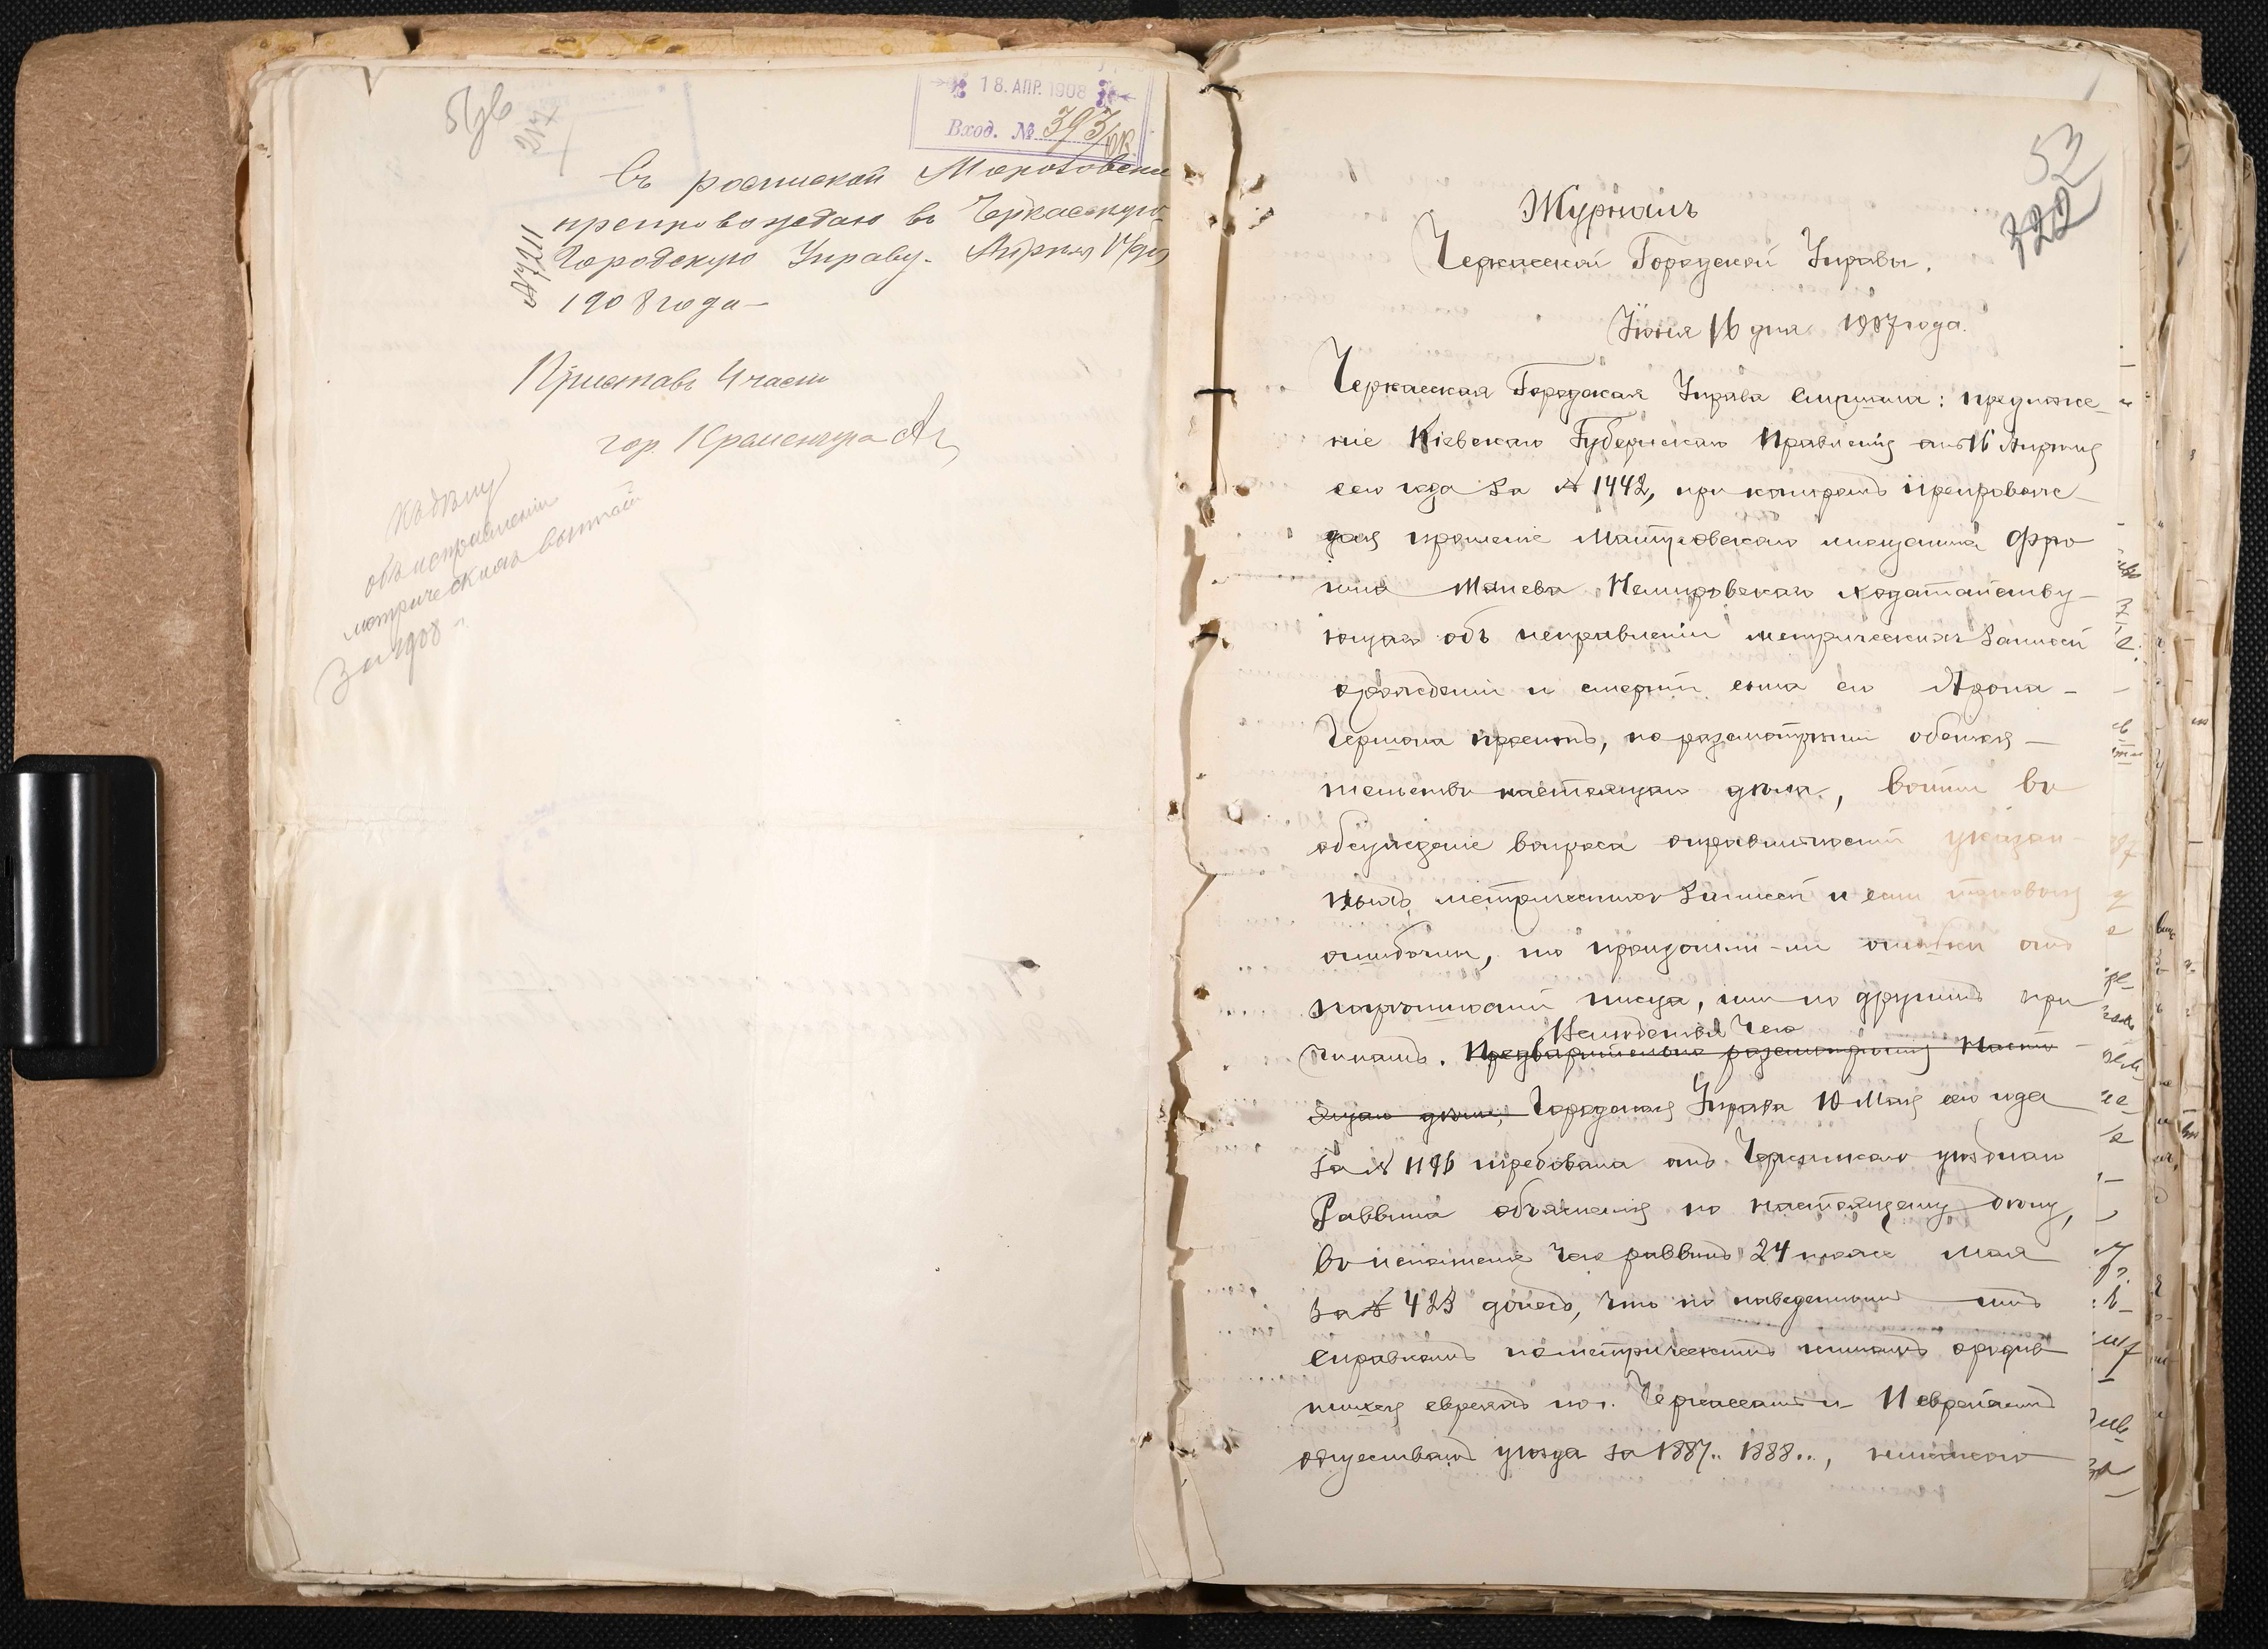 18. АПР. 1908
Вход. № 393/ов.
Съ роспиской Морозовской
препровождаю въ Черкасскую
Городскую Управу. Апрѣля 14 дня
1908 года
№ 7211
Приставъ 1 части
гор. Кременчуга
Къ дѣлу
объ исправленіи
метрическихъ
За 1908 г.
53
322
Журналъ
Черкасской Городской Управы.
Іюня 16 дня 1907 года.
Черкасская Городская Управа слушала: предложе-
ніе Кіевскаго Губернскаго Правленія отъ 16 Апрѣля
сего года за № 1442, при которомъ препровож-
дая прошеніе мѣщанина Фро
има Немировскаго ходатайству-
ющаго объ исправленіи метрическихъ записей
о рожденіи и смерти сына его Арона-
Гершона проситъ, по разсмотрѣніи обстоя-
тельствъ настоящаго дѣла, войти въ
обсужденіе вопроса о правильности указан-
ныхъ метрическихъ записей и если таковыя
ошибочны, то произошли-ли ошибки отъ
неграмотности писца, или по другимъ при
чинамъ. Предварительно разсмотрѣнія Насто
ящаго дѣла, Городская Управа 10 Мая сего года
за № 1196 требовала отъ Черкасскаго уѣзднаго
Раввина объясненія по настоящему дѣлу,
Во исполненіе чего раввинъ 24 того же Мая
за № 423 донесъ, что по наведеннымъ имъ
справкамъ по метрическимъ книгамъ о родив
шихся евреяхъ по г. Черкассамъ и 11 еврейскимъ
обществамъ уѣзда за 1887.. 1888..,